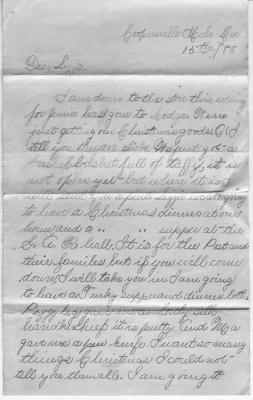 Coopersville Mich Dec
15th / 86
Dear Lizzie
I am down to the store this evening
for Junius has gone to Lodge. We are
just getting our Christmas goods. O I'd
tell you they are slick. We just got a
bushel basket full of taffy, it is
not open yet but when it is I
will send you a piece. Lizzie we are going
to have a Christmas dinner at our
house and a " " supper at the
G. A. R. hall. It is for the Post and
their families but if you will come
down I will take you in. I am going
to have a Turky supper and dinner both.
Peggy gave me silk
handkerchief it is pretty. And Ma
gave me a penknife. I want so many
things Christmas I could not
tell you them all. I am going to